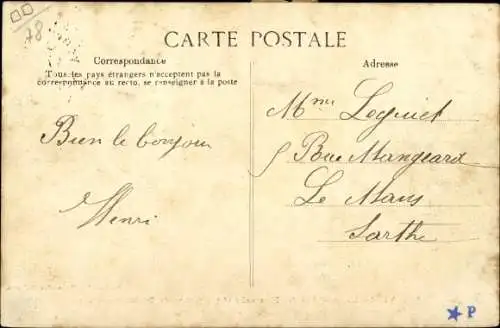 78
CARTE POSTALE
Correspondance
Tous les pays étrangers n'acceptent pas la
correspondance au recto, se renseigner à la poste
Adresse
Bien le bonjour
Henri
Mme Leguiet
5 Rue Mangeard
Le Mans
Sarthe
P